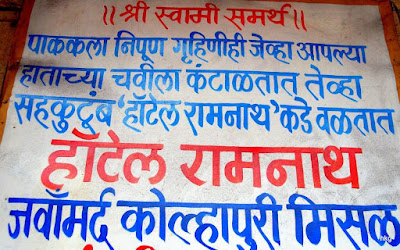 ।। श्री स्वामी समर्थ ।।
पाककला निपूण गृहिणीही जेव्हा आपल्या
हाताच्या चवीला कंटाळतात तेव्हा
सहकुटूंब 'हॉटेल रामनाथ' कडे वळतात
हॉटेल रामनाथ
जवाँमर्द कोल्हापुरी मिसळ